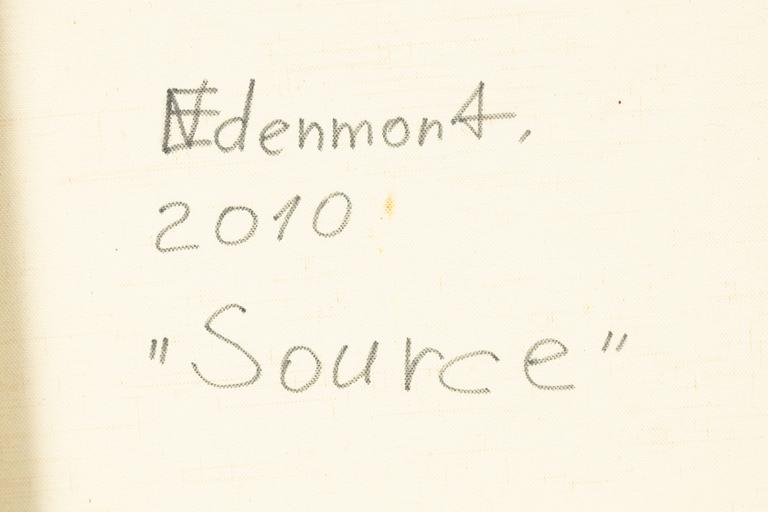 NEdenmont,
2010
"Source"